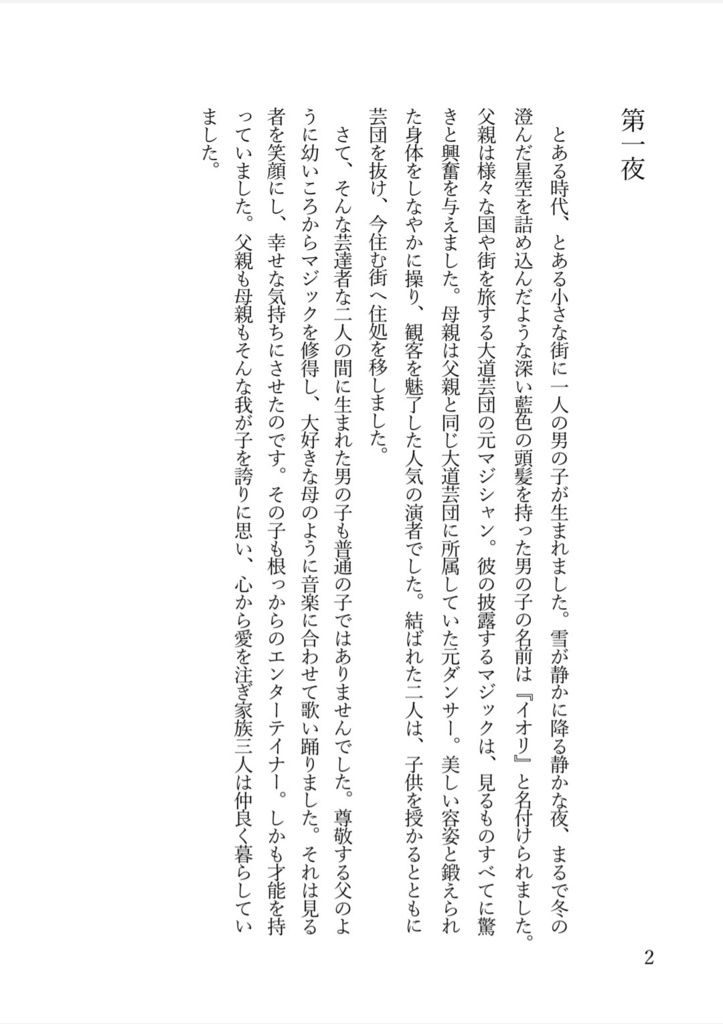 第一夜
　とある時代、とある小さな街に一人の男の子が生まれました。雪が静かに降る静かな夜、まるで冬の
澄んだ星空を詰め込んだような深い藍色の頭髪を持った男の子の名前は『イオリ』と名付けられました。
父親は様々な国や街を旅する大道芸団の元マジシャン。彼の披露するマジックは、見るものすべてに驚
きと興奮を与えました。母親は父親と同じ大道芸団に所属していた元ダンサー。美しい容姿と鍛えられ
た身体をしなやかに操り、観客を魅了した人気の演者でした。結ばれた二人は、子供を授かるとともに
芸団を抜け、今住む街へ住処を移しました。
　さて、そんな芸達者な二人の間に生まれた男の子も普通の子ではありませんでした。尊敬する父のよ
うに幼いころからマジックを修得し、大好きな母のように音楽に合わせて歌い踊りました。それは見る
者を笑顔にし、幸せな気持ちにさせたのです。その子も根っからのエンターテイナー。しかも才能を持
っていました。父親も母親もそんな我が子を誇りに思い、心から愛を注ぎ家族三人は仲良く暮らしてい
ました。
2